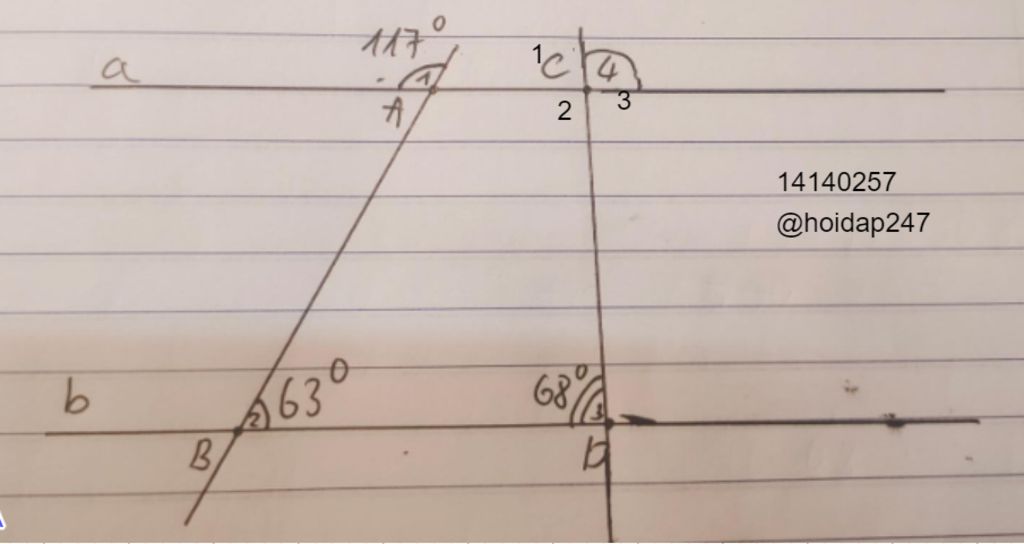 117°
a
1
A
1
C
4
2
3
14140257
@hoidap247
b
2
63°
68°
3
B
D